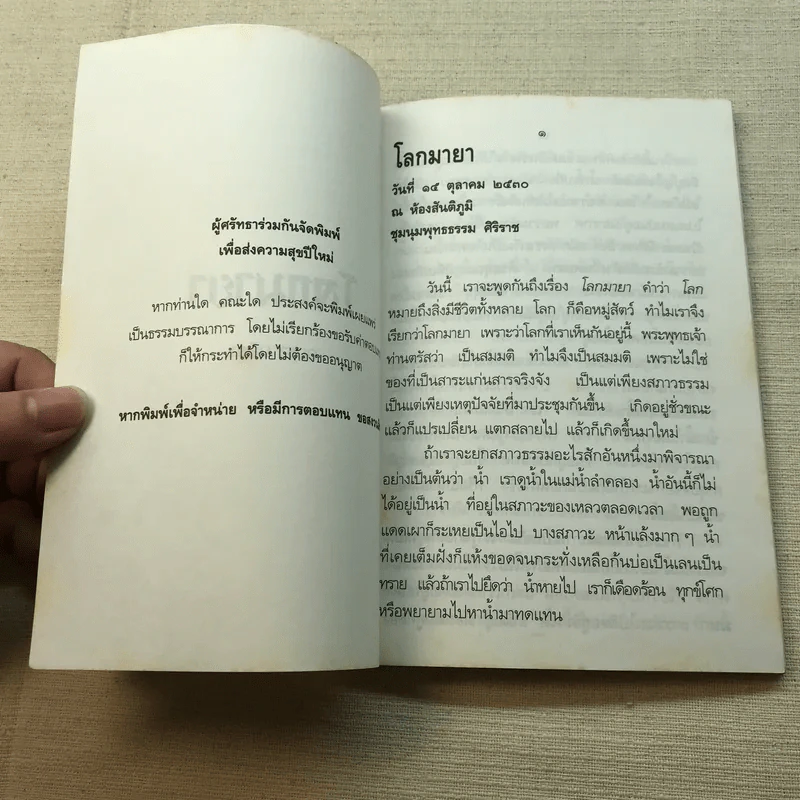 ผู้ศรัทธาร่วมกันจัดพิมพ์
เพื่อส่งความสุขปีใหม่
หากท่านใด คณะใด ประสงค์จะพิมพ์เผยแพร่
เป็นธรรมบรรณาการ โดยไม่เรียกร้องขอรับค่าตอบแทน
ก็ให้กระทำได้โดยไม่ต้องขออนุญาต
หากพิมพ์เพื่อจำหน่าย หรือมีการตอบแทน
๑
โลกมายา
วันที่ ๑๕ ตุลาคม ๒๕๓๐
ณ ห้องสันติภูมิ
ชุมนุมพุทธธรรม ศิริราช
วันนี้ เราจะพูดกันถึงเรื่อง โลกมายา คำว่า โลก
หมายถึงสิ่งมีชีวิตทั้งหลาย โลก ก็คือหมู่สัตว์ ทำไมเราจึง
เรียกว่าโลกมายา เพราะว่าโลกที่เราเห็นกันอยู่นี้ พระพุทธเจ้า
ท่านตรัสว่า เป็นสมมติ ทำไมจึงเป็นสมมติ เพราะไม่ใช่
ของที่เป็นสาระแก่นสารจริงจัง เป็นแต่เพียงสภาวธรรม
เป็นแต่เพียงเหตุปัจจัยที่มาประชุมกันขึ้น เกิดอยู่ชั่วขณะ
แล้วก็แปรเปลี่ยน แตกสลายไป แล้วก็เกิดขึ้นมาใหม่
ถ้าเราจะยกสภาวธรรมอะไรสักอันหนึ่งมาพิจารณา
อย่างเป็นต้นว่า น้ำ เราดูน้ำในแม่น้ำลำคลอง น้ำอันนี้ก็ไม่
ได้อยู่เป็นน้ำ ที่อยู่ในสภาวะของเหลวตลอดเวลา พอถูก
แดดเผาก็ระเหยเป็นไอไป บางสภาวะ หน้าแล้งมาก ๆ น้ำ
ที่เคยเต็มฝั่งก็แห้งขอดจนกระทั่งเหลือก้นบ่อเป็นเลนเป็น
ทราย แล้วถ้าเราไปยึดว่า น้ำหายไป เราก็เดือดร้อน ทุกข์โศก
หรือพยายามไปหาน้ำมาทดแทน